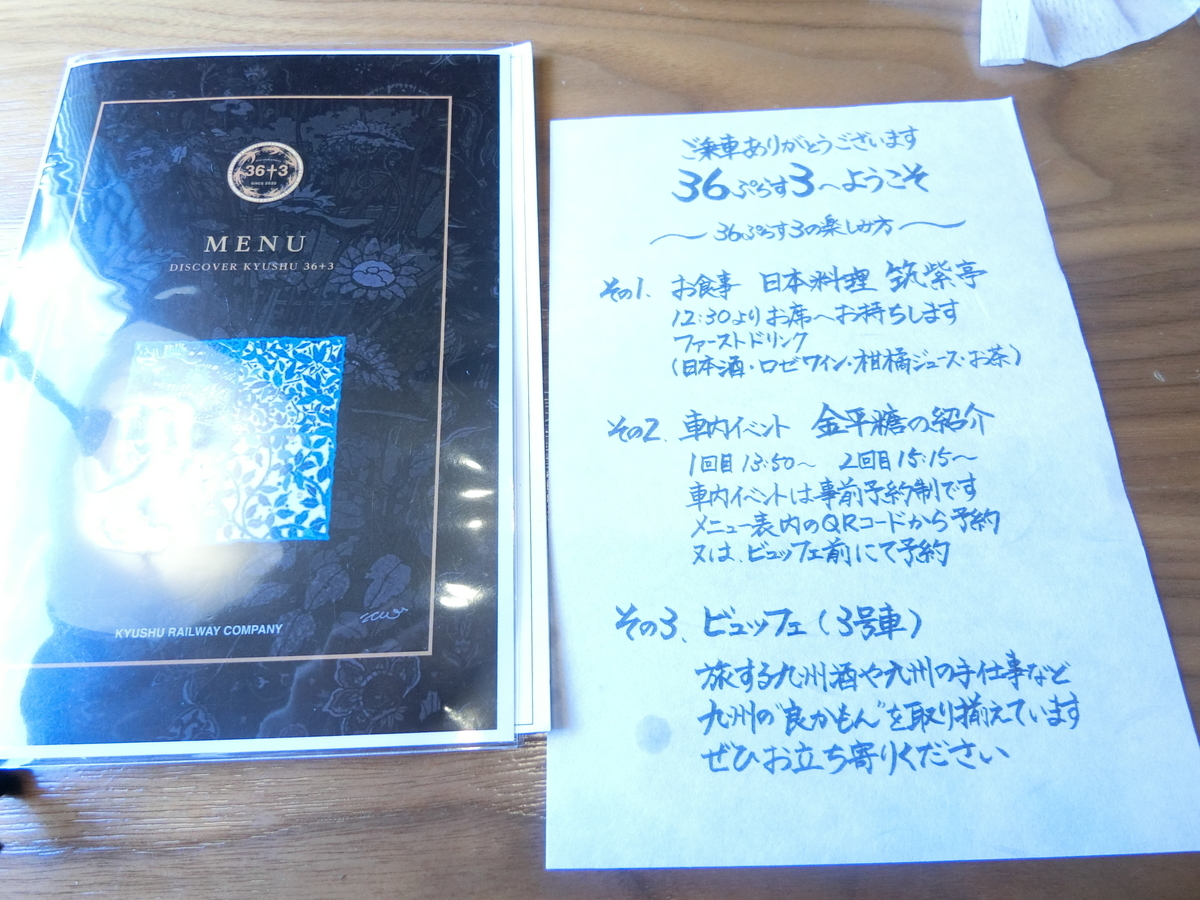 36+3
SINCE 2020
MENU
DISCOVER KYUSHU 36+3
KYUSHU RAILWAY COMPANY
ご乗車ありがとうございます
36ぷらす3へようこそ
〜36ぷらす3の楽しみ方〜
その1、お食事 日本料理 筑紫亭
12:30よりお席へお持ちします
ファーストドリンク
(日本酒・ロゼワイン・柑橘ジュース・お茶)
その2、車内イベント 金平糖の紹介
1回目13:50〜 2回目15:15〜
車内イベントは事前予約制です
メニュー表内のQRコードから予約
又は、ビュッフェ前にて予約
その3、ビュッフェ(3号車)
旅する九州酒や九州の手仕事など
九州の"良かもん"を取り揃えています
ぜひお立ち寄りください